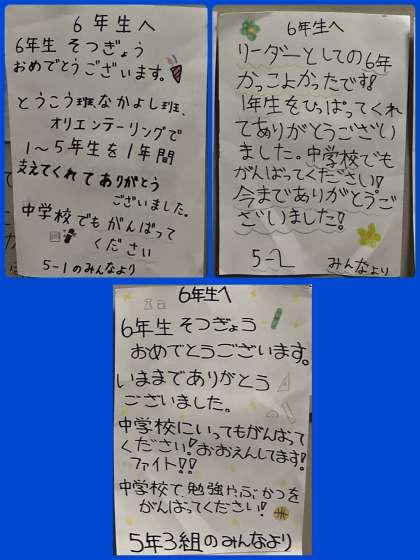 6年生へ
6年生 そつぎょう
おめでとうございます。
とうこう班、なかよし班、
オリエンテーリングで
1〜5年生を1年間
支えてくれて ありがとう
ございました。
中学校でも がんばって
ください
5-1のみんなより
6年生へ
リーダーとしての6年
かっこよかったです!
1年生をひっぱってくれ
てありがとうござい
ました。中学校でも
がんばってください!
今までありがとうご
ございました!
5-2 みんなより
6年生へ
6年生 そつぎょう
おめでとうございます。
いままでありがとう
ございました。
中学校にいってもがんばって
ください!おおえんしてます!
ファイト!!
中学校で、勉強や、ぶかつを
がんばってください!
5年3組のみんなより